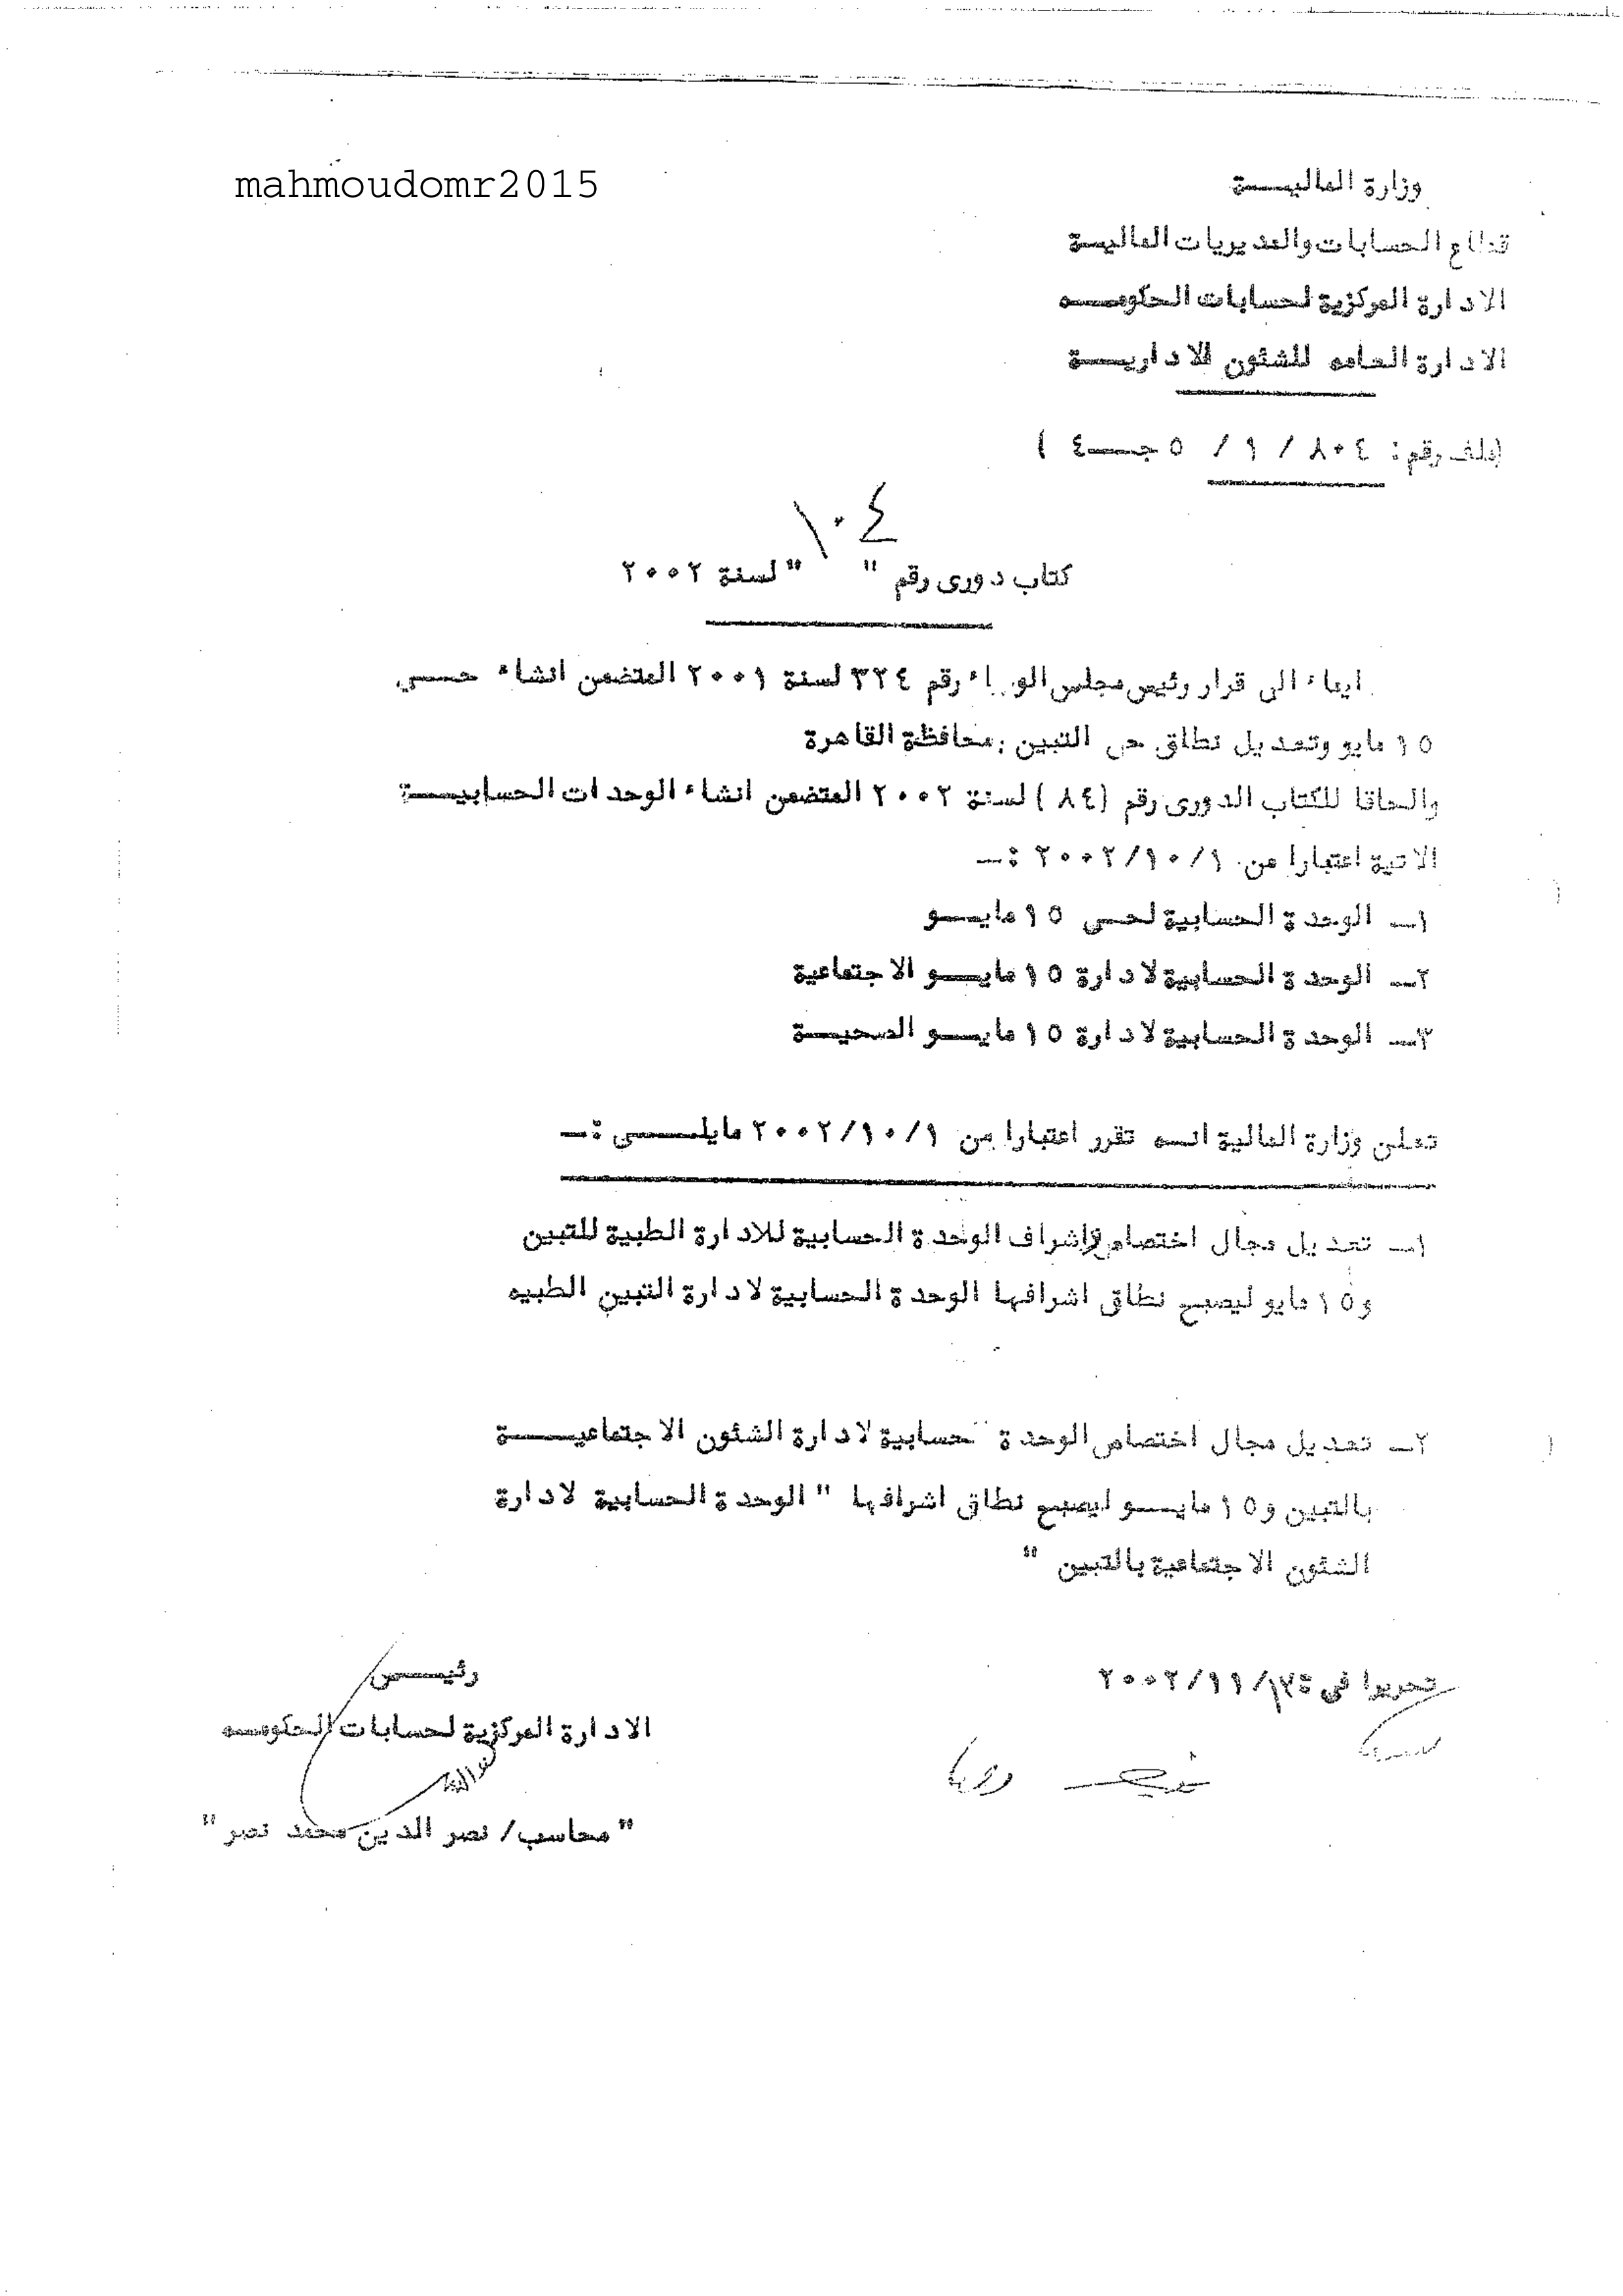 mahmoudomr2015
وزارة الماليـــة
قطاع الحسابات والمديريات الماليـة
الادارة المركزية لحسابات الحكومـــه
الادارة العامه للشئون الاداريـــة
(ملف رقم : ٨٠٤ / ١ / ٥ جـــ٤ )
١٠٤
كتاب دورى رقم " " لسنة ٢٠٠٢
ايماء الى قرار رئيس مجلس الوزراء رقم ٣٢٤ لسنة ٢٠٠١ المتضمن انشاء حـــى
١٥ مايو وتعديل نطاق حى التبين بمحافظة القاهرة
والحاقا للكتاب الدورى رقم (٨٤) لسنة ٢٠٠٢ المتضمن انشاء الوحدات الحسابيـــة
الاتية اعتبارا من ٢٠٠٢/١٠/١ :ــ
١ــ الوحدة الحسابية لحـى ١٥ مايـــو
٢ــ الوحدة الحسابية لادارة ١٥ مايـــو الاجتماعية
٣ــ الوحدة الحسابية لادارة ١٥ مايـــو الصحيـــة
تعلن وزارة المالية انـه تقرر اعتبارا من ٢٠٠٢/١٠/١ مايلـــى :ــ
١ــ تعديل مجال اختصام واشراف الوحدة الحسابية للادارة الطبية للتبين
و١٥ مايو ليصبح نطاق اشرافها الوحدة الحسابية لادارة التبين الطبيه
٢ــ تعديل مجال اختصاص الوحدة الحسابية لادارة الشئون الاجتماعيـــة
بالتبين و١٥ مايـــو ليصبح نطاق اشرافها " الوحدة الحسابية لادارة
الشئون الاجتماعية بالتبين "
تحريرا فى ٢٠٠٢/١١/
رئيـــس
الادارة المركزية لحسابات الحكومـــه
" محاسب/ نصر الدين محمد نصر "